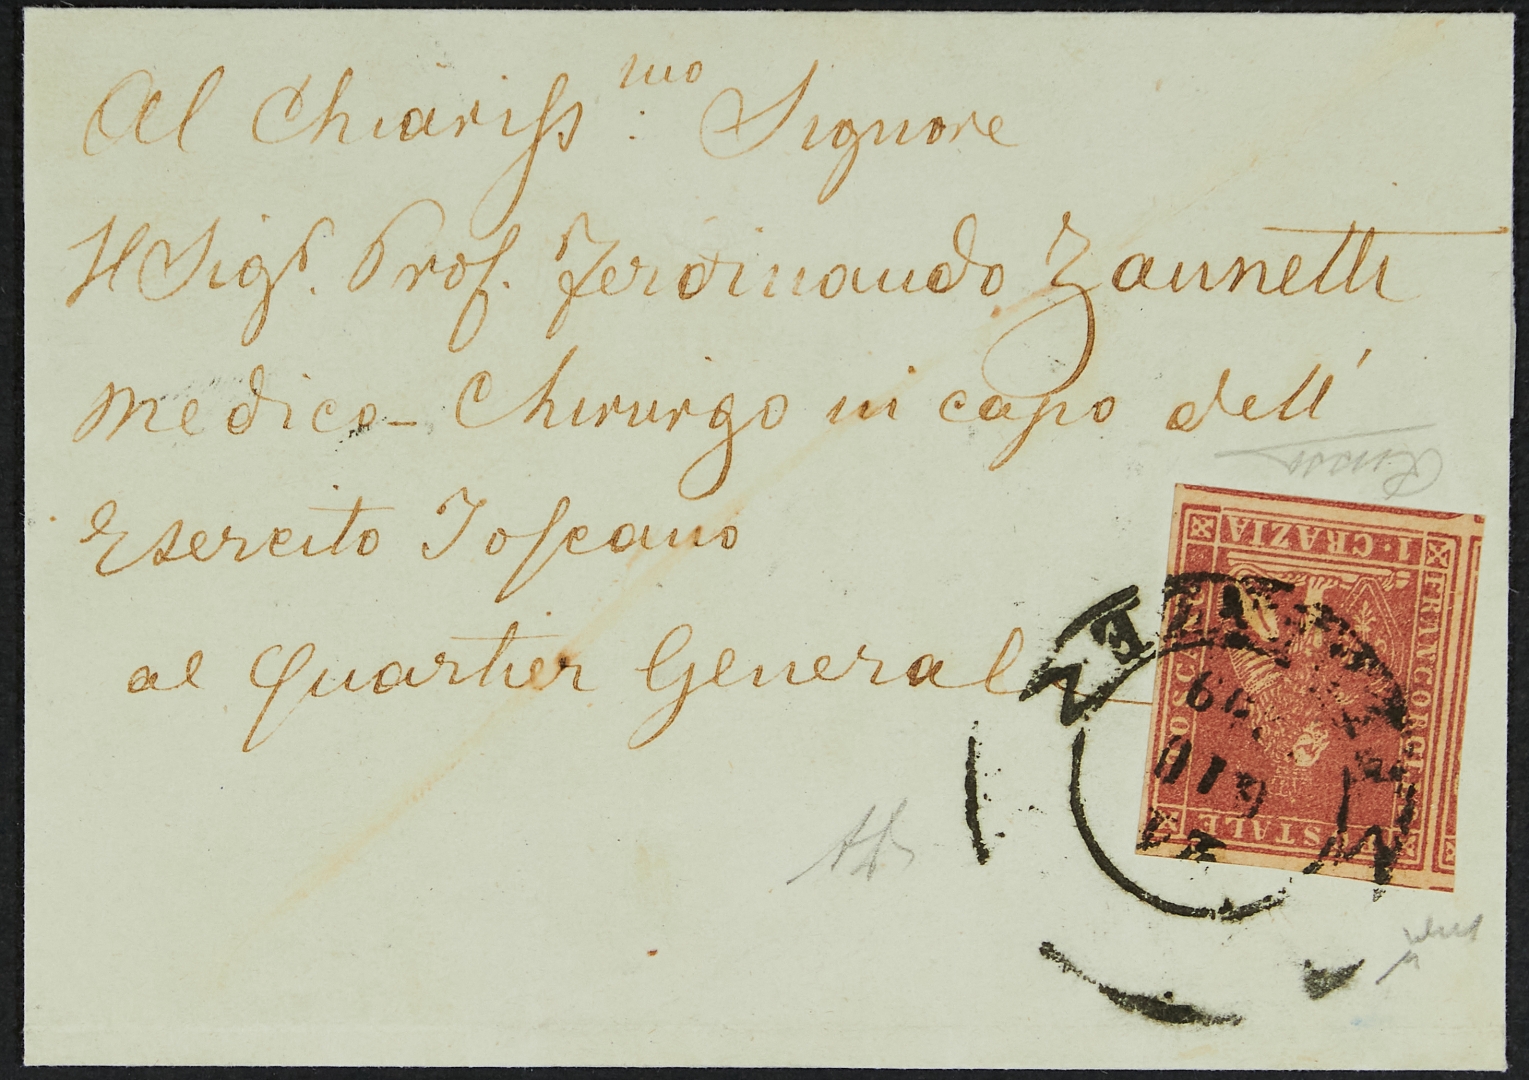 Al Chiariss.mo Signore
Il Sigr. Prof. Ferdinando Zannetti
Medico-Chirurgo in capo dell'
Esercito Toscano
al Quartier General
1·CRAZIA
FRANCOBOLLO
POSTALE
TOSCANO
GIU